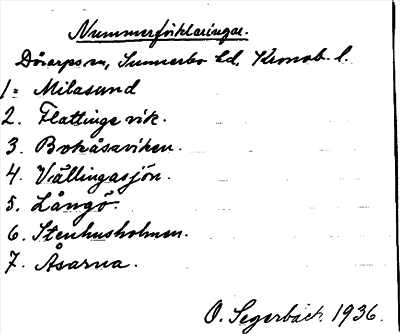 Nummerförklaringar.
Dörarps sn, Sunnerbo hd, Kronob. l.
1 = Milasund
2. Flattinge vik.
3. Bokåsaviken.
4. Vällingasjön.
5. Långö.
6. Stenhusholmen.
7. Åsarna.
O. Segerbäck 1936.